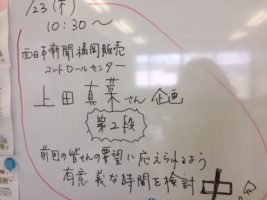 /23(木)
10:30〜
西日本新聞福岡販売
コントロールセンター
上田真菜さん企画
第2段
前回の皆さんの要望に応えられるよう
有意義な時間を検討